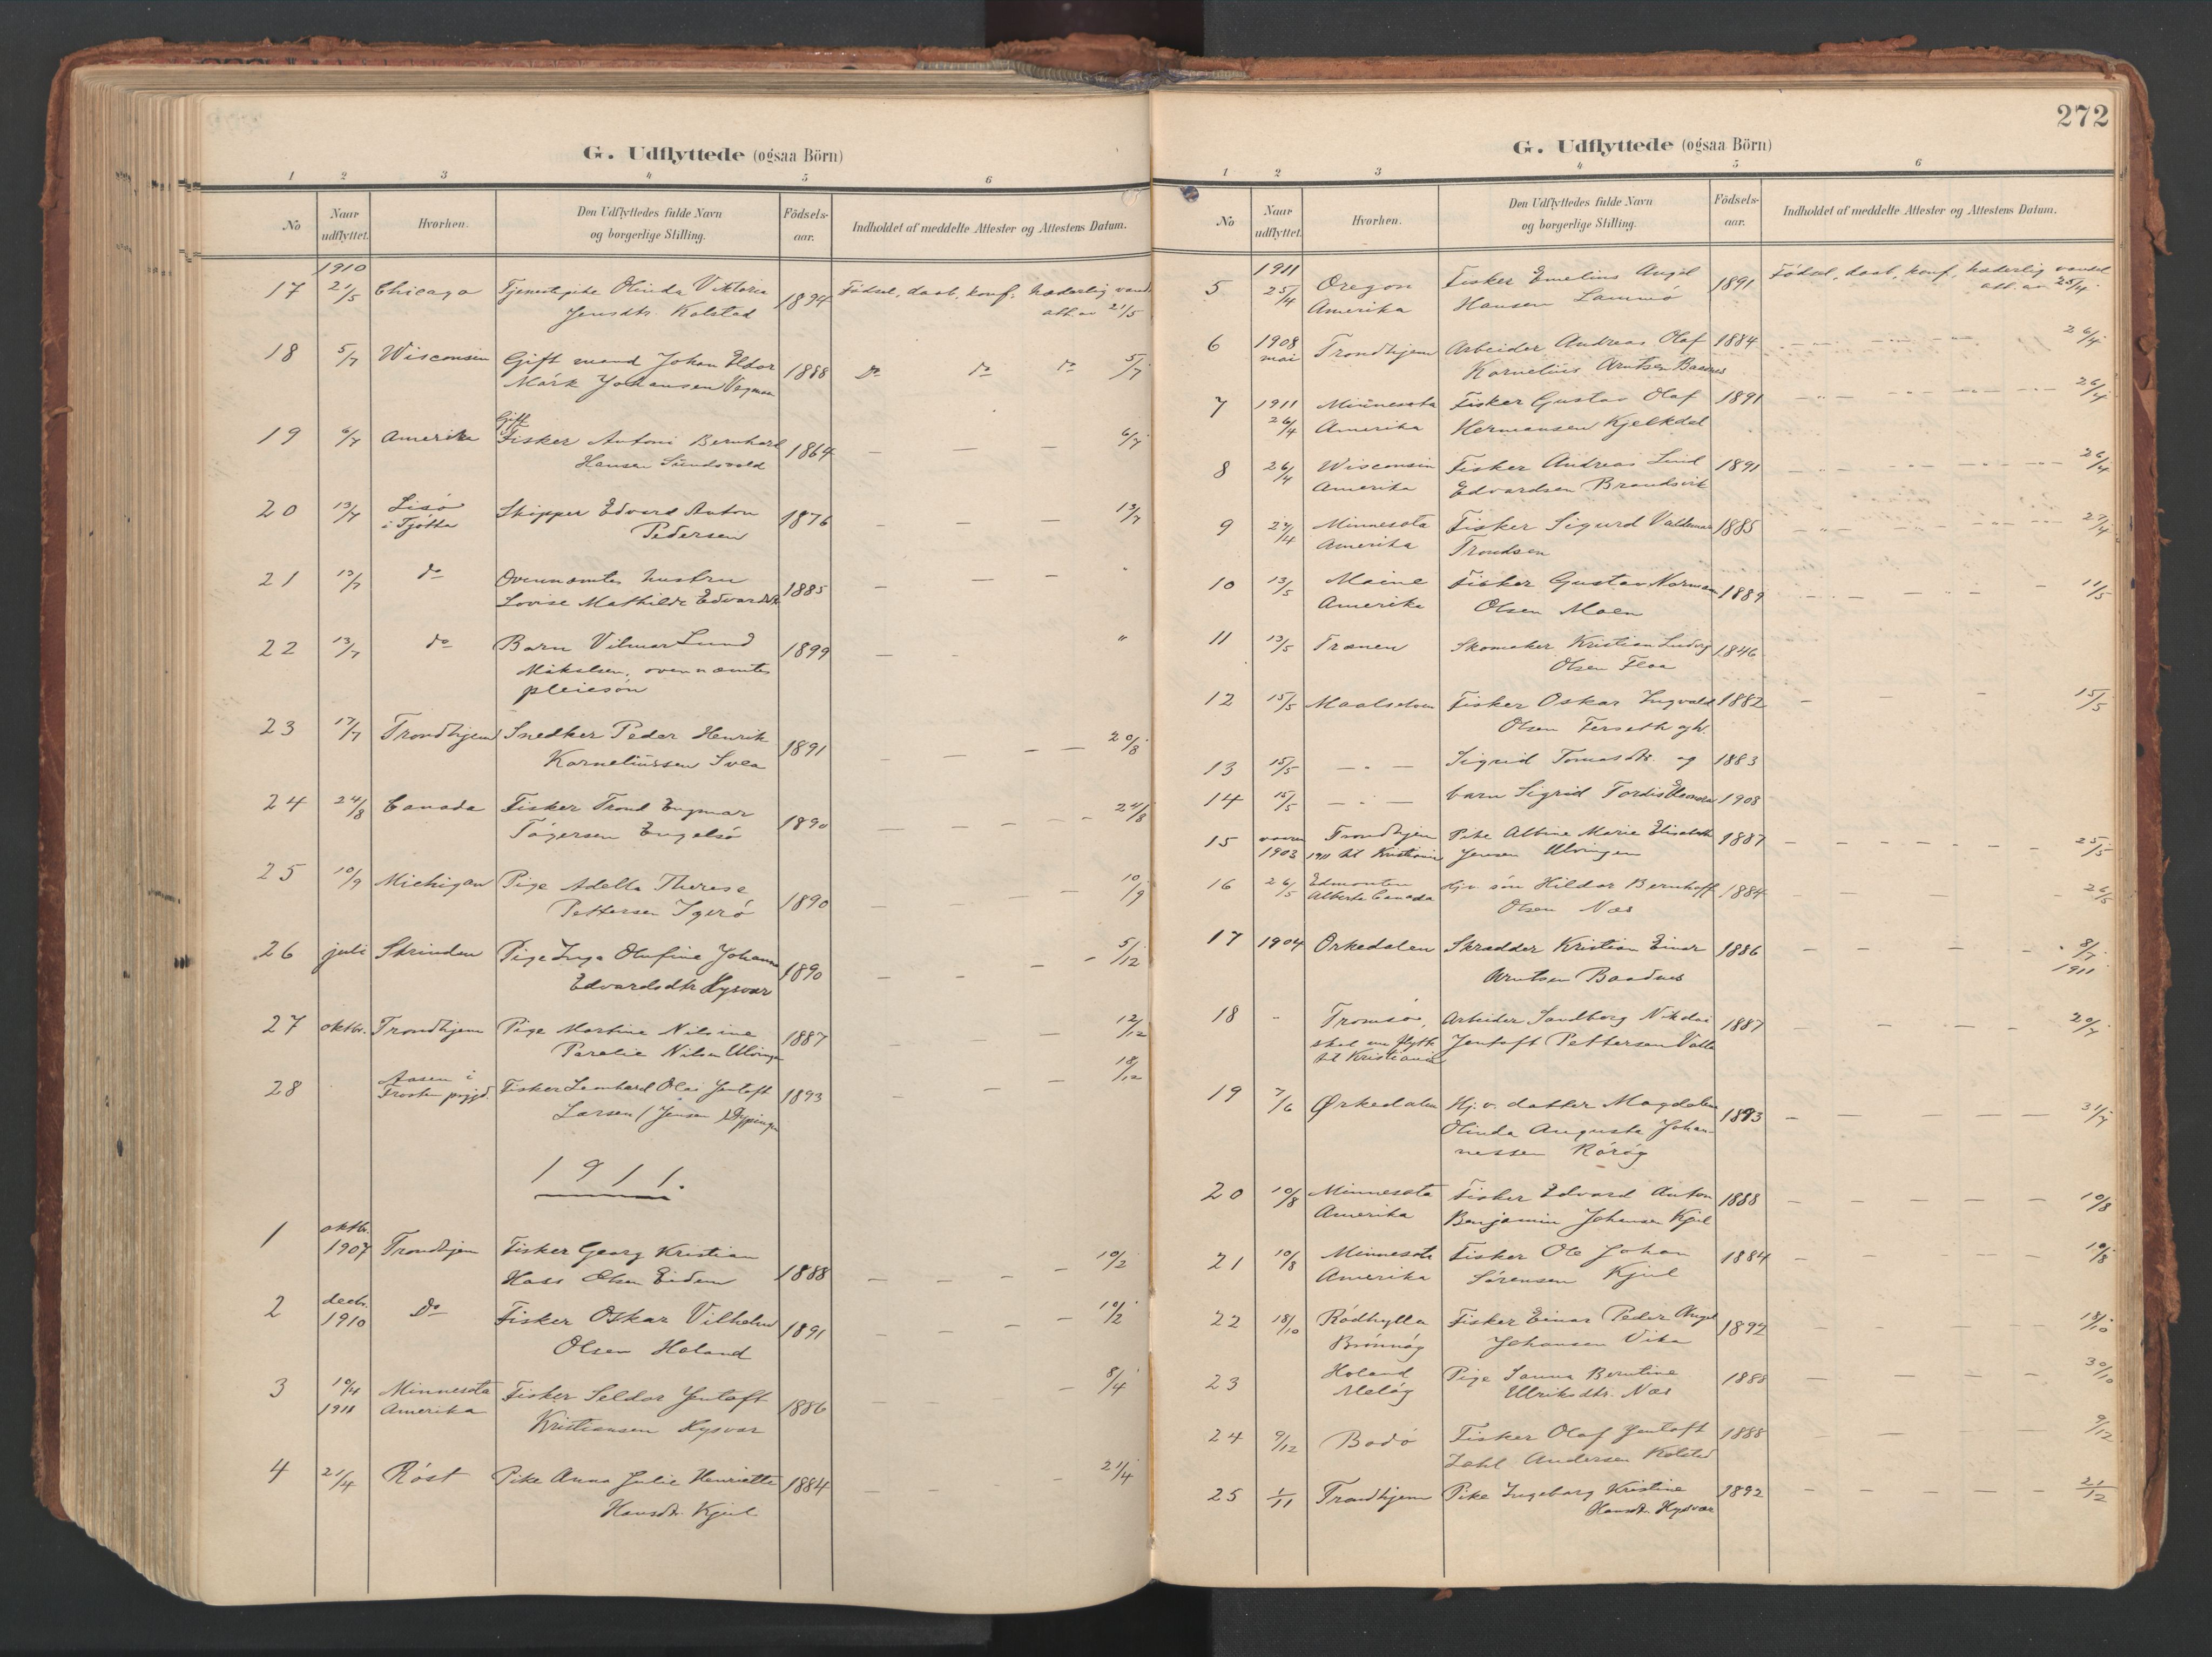 G. Udflyttede (ogsaa Börn)
1 2 3 4 5 6
No
Naar udflyttet.
Hvorhen.
Den Udflyttedes fulde Navn
og borgerlige Stilling.
Födsels-
aar.
Indholdet af meddelte Attester og Attestens Datum.
1910
17 21/5 Chicago Tjenestepike Olinda Viktoria 1894 Födsel, daab, konf, hæderlig vand.
Jensdtr. Kolstad att. av 21/5
18 5/7 Wisconsin Gift mand Johan Eldor 1888 Do do do 5/7
Mörk Johansen
19 6/7 Amerika Gift
Fisker Antoni Bernhard 1864 — — — 6/7
Hansen Sundsvold
20 13/7 Lisö Skipper Edvard Anton 1876 — — — 13/7
i Tjötta Pedersen
21 13/7 do Ovennævntes hustru 1885 — — — "
Lovise Mathilde
22 13/7 do Barn Vilmar Lund 1899 — "
Mikalsen, ovennævntes
pleiesön
23 17/7 Trondhjem Snedker Peder Henrik 1891 — — — — 20/8
Korneliussen Svea
24 24/8 Canada Fisker Trond Engmar 1890 — — — — — 24/8
Tögersen Engelsö
25 10/9 Michigan Pige Adella Therese 1890 — — — 10/9
Pettersen Igerö
26 juli Strinden Pige Inga Olufine Johanna 1890 — — — — 5/12
Edvardsdtr Hysvær
27 oktbr. Trondhjem Pige Martine Nilsine 1887 — — — 12/12
Parelie Nilsen Ulvingen
28 Aasen i Fisker Leonhard Olai Jentoft 1893 — — — 18/12
Frosta prgjd. Larsen / Jensen
1911.
1 oktbr. 1907 Trondhjem Fisker Georg Kristian 1888 — — — — 10/2
Hass Olsen Eidem
2 decbr. 1910 Do Fisker Oskar Vilhelm 1891 — — — — 10/2
Olsen Holand
3 10/4 1911 Minnesota Fisker Seldor Jentoft 1886 — — — 8/4
Amerika Kristiansen Hysvær
4 21/4 Röst Pike Anna Julie Henriette 1884 — — 21/4
Hansdtr. Kjul
272
G. Udflyttede (ogsaa Börn)
1 2 3 4 5 6
No
Naar udflyttet.
Hvorhen.
Den Udflyttedes fulde Navn
og borgerlige Stilling.
Födsels-
aar.
Indholdet af meddelte Attester og Attestens Datum.
1911
5 25/4 Oregon Fisker Emelius Angel 1891 Födsel, daab, konf, hæderlig vandel
Amerika Hansen Lammö att. av 25/4.
6 1908 mai Trondhjem Arbeider Andreas Olaf 1884 — — — — 26/4
Kornelius Arntsen Baadnes
7 1911 26/4 Minnesota Fisker Gustav Olaf 1891 — — — — 26/4
Amerika Hermansen Kjelkdal
8 26/4 Wisconsin Fisker Andreas Lind 1891 — — — — 26/4
Amerika Edvardsen Brandsvik
9 27/4 Minnesota Fisker Sigurd Valdemar 1885 — — — — 27/4
Amerika Trondsen
10 13/5 Maine Fisker Gustav Norman 1889 — — — — 11/5
Amerika Olsen Moen
11 13/5 Trænen Skomaker Kristian Ludvig 1846
Olsen Floa
12 15/5 Maalselven Fisker Oskar Ingvald 1882 — — — — 15/5
Olsen Forseth
13 15/5 — " — Sigrid Tomasdtr. og 1883
14 15/5 — " — barn Sigrid Tordis Eleonora 1908
15 vaaren 1903 Trondhjem Pike Albine Marie Elisabeth 1887 — — — — — — 25/5
1911 til Kristiania Jensen Ulvingen
16 26/5 Edmonton Hj.v. sön Hildor Bernhoff 1884 — — — — 26/5
Alberta Canada Olsen Næs
17 1904 Orkedalen Skrædder Kristian Einar 1886 — — — — 8/7
Arntsen Baadnes 1911
18 " Tromsö, Arbeider Sandberg Nikolai 1887 — — — — 20/7
skal nu flytte Jentoft Pettersen Valla
til Kristiania
19 7/6 Ørkedalen Hj.v. datter Magdalena 1893 — — — — — 31/7
Olinda Augusta Johan-
nessen Röröy
20 10/8 Minnesota Fisker Edvard Anton 1888 — — — — — 10/8
Amerika Benjamin Johansen Kjul
21 10/8 Minnesota Fisker Ole Johan 1884 — — — — — 10/8
Amerika Sörensen Kjul
22 18/10 Rödhylla Fisker Einar Peder Angel 1892 — — — — — 18/10
Brönnöy Johansen Vika
23 Holand Pige Sanna Berntine 1888 — — — — — 30/10
Melöy Ulriksdtr. Næs
24 9/12 Bodö Fisker Olaf Jentoft 1888 — — — — — 9/12
Zahl Andersen Kolstad
25 1/11 Trondhjem Pike Ingeborg Kristine 1892 — — — — — 2/12
Hansdtr. Hysvær